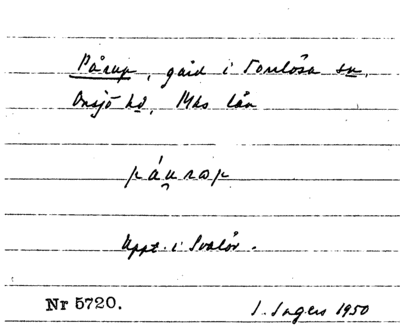 Pårup, gård i Torrlösa sn,
Onsjö hd, Mhs län
páu̯rap
Uppt. i Svalöv.
Nr 5720. I. Ingers 1950